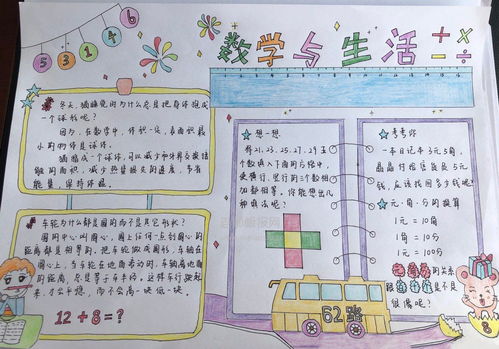 5 3 1 4 6
数学与生活
+ × - ÷
冬天，猫睡觉时为什么总是把身体抱成
一个球形呢？
因为，在数学中，体积一定，表面积最
小的物体是球体。
猫抱成一个球体，可以减少和外界交换接
触的面积，减少热量散失的速度，节省
能量，保持体温。
车轮为什么都是圆的而不是其它形状？
圆的中心叫圆心，圆上任何一点到圆心的
距离都是相等的。把车轮做成圆形，车轴在
圆心上，当车轮在地面滚动时，车轴离地面
的距离，总是等于车半径。这样车行驶起
来，才会平稳，而不会高一块低一块。
12 + 8 = ?
想一想
将21、23、25、27、29五
个数填入下面的方格中，
使横行、竖行的三个数相
加都等。你能想出几
种填法呢？
考考你
一本日记本3元5角，
晶晶付给店员5元
钱，应该找回多少钱呢？
元、角、分的换算
1元=10角
1角=10分
1元=100分
元角分的关系
是不是
很像呢？
62路
8